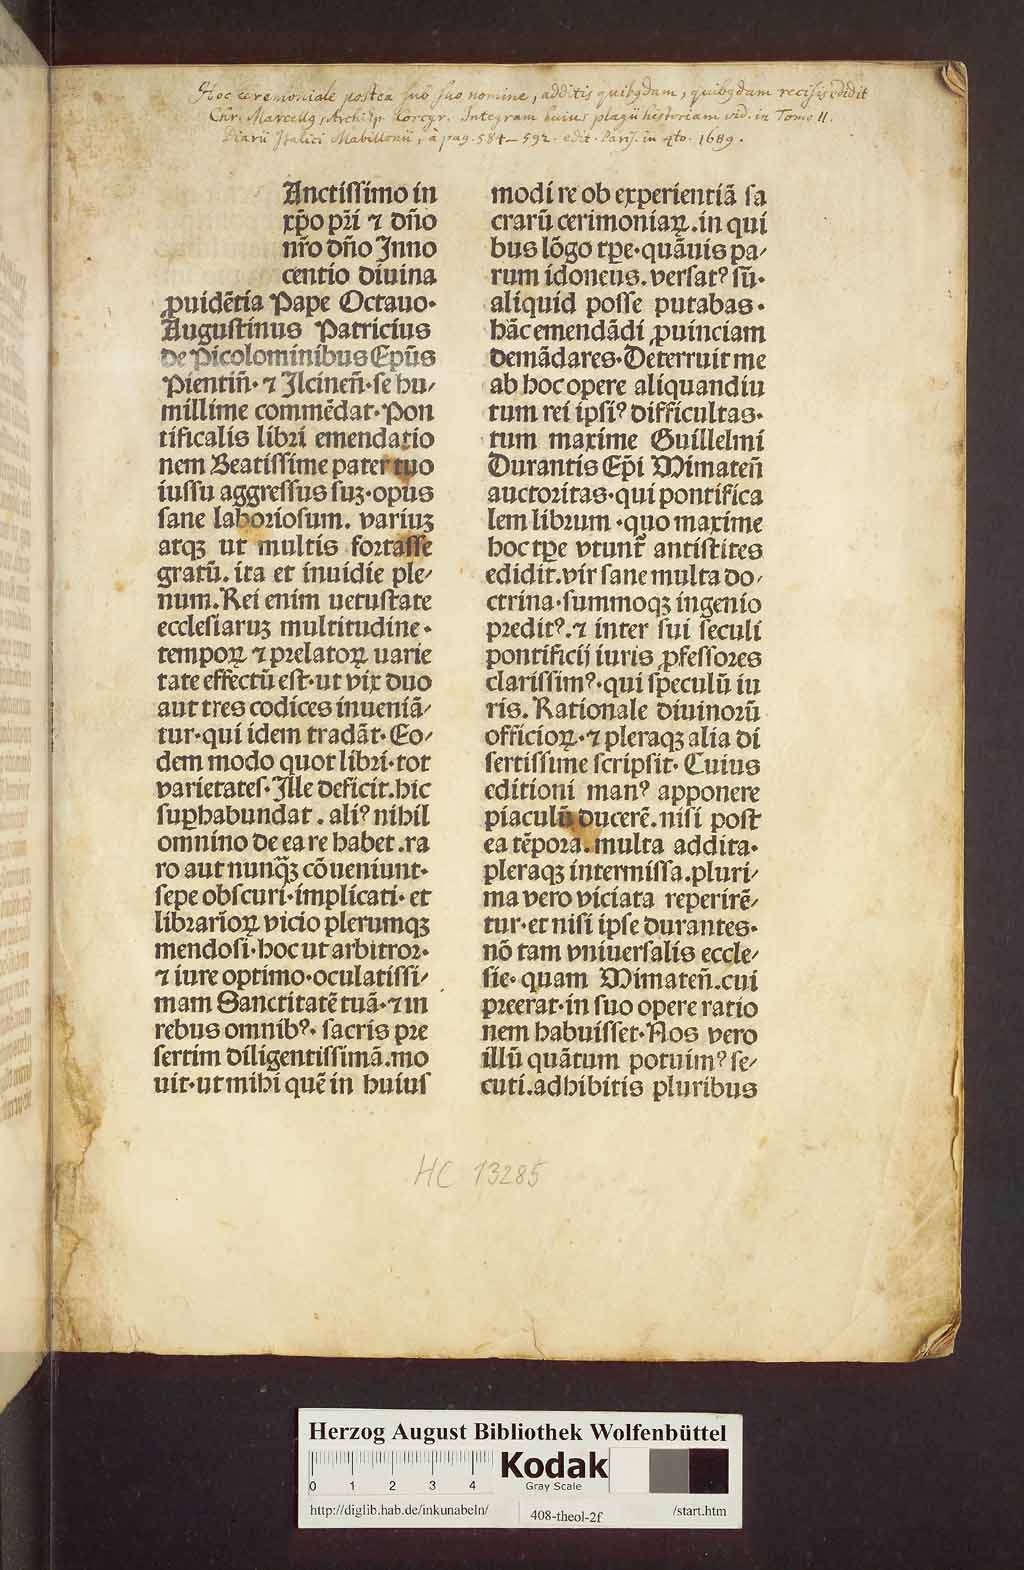 Hoc ceremoniale postea sub suo nomine, additis quibꝰdam, quibꝰdam recisis edidit
Chr. Marcellꝰ, Archiep. Corcyr. Integram huius plagii historiam vid. in Tomo II.
Diarii Italici Mabillonii, à pag. 584–592. edit. Paris. in 4to. 1689.
Anctissimo in
xp̄o pr̄i ⁊ dño
nr̄o dño Inno
centio diuina
ꝓuidētia Pape Octauo·
Augustinus Patricius
de Picolominibus Epūs
Pientiñ· ⁊ Ilcineñ·se hu⸗
millime commēdat·Pon
tificalis libri emendatio
nem Beatissime pater tuo
iussu aggressus suꝫ·opus
sane laboriosum. variuꝫ
atqꝫ ut multis fortasse
gratū. ita et inuidie ple⸗
num. Rei enim uetustate
ecclesiaruꝫ multitudine·
tempoꝝ ⁊ prelatoꝝ uarie
tate effectū est·ut vix duo
aut tres codices inueniā⸗
tur·qui idem tradāt·Eo⸗
dem modo quot libri·tot
varietates·Ille deficit.hic
suꝑhabundat. aliꝰ nihil
omnino de ea re habet.ra
ro aut nunqꝫ̄ cōueniunt·
sepe obscuri·implicati·et
librarioꝝ vicio plerumqꝫ
mendosi·hoc ut arbitror·
⁊ iure optimo·oculatissi⸗
mam Sanctitatē tuā·⁊ in
rebus omnibꝰ· sacris pre
sertim diligentissimā.mo
uit·ut mihi quē in huius
modi re ob experientiā sa
crarū cerimoniaꝝ.in qui
bus lōgo tꝑe·quāuis pa⸗
rum idoneus.versatꝰ sū·
aliquid posse putabas·
hāc emendādi ꝓuinciam
demādares·Deterruit me
ab hoc opere aliquandiu
tum rei ipsiꝰ difficultas·
tum maxime Guillelmi
Durantis Ep̄i Mimateñ
auctoritas·qui pontifica
lem librum·quo maxime
hoc tꝑe vtunt᷑ antistites
edidit.vir sane multa do⸗
ctrina·summoqꝫ ingenio
preditꝰ.⁊ inter sui seculi
pontificij iuris ꝓfessores
clarissimꝰ·qui speculū iu
ris. Rationale diuinorū
officioꝝ·⁊ pleraqꝫ alia di
sertissime scripsit· Cuius
editioni manꝰ apponere
piaculū ducerē.nisi post
ea tēpora.multa addita·
pleraqꝫ intermissa.pluri⸗
ma vero viciata reperirē⸗
tur·et nisi ipse durantes·
nō tam vniuersalis eccle⸗
sie· quam Mimateñ.cui
preerat·in suo opere ratio
nem habuisset·Nos vero
illū quātum potuimꝰ se⸗
cuti.adhibitis pluribus
HC 13285
Herzog August Bibliothek Wolfenbüttel
0 1 2 3 4
Kodak
Gray Scale
http://diglib.hab.de/inkunabeln/
408-theol-2f
/start.htm